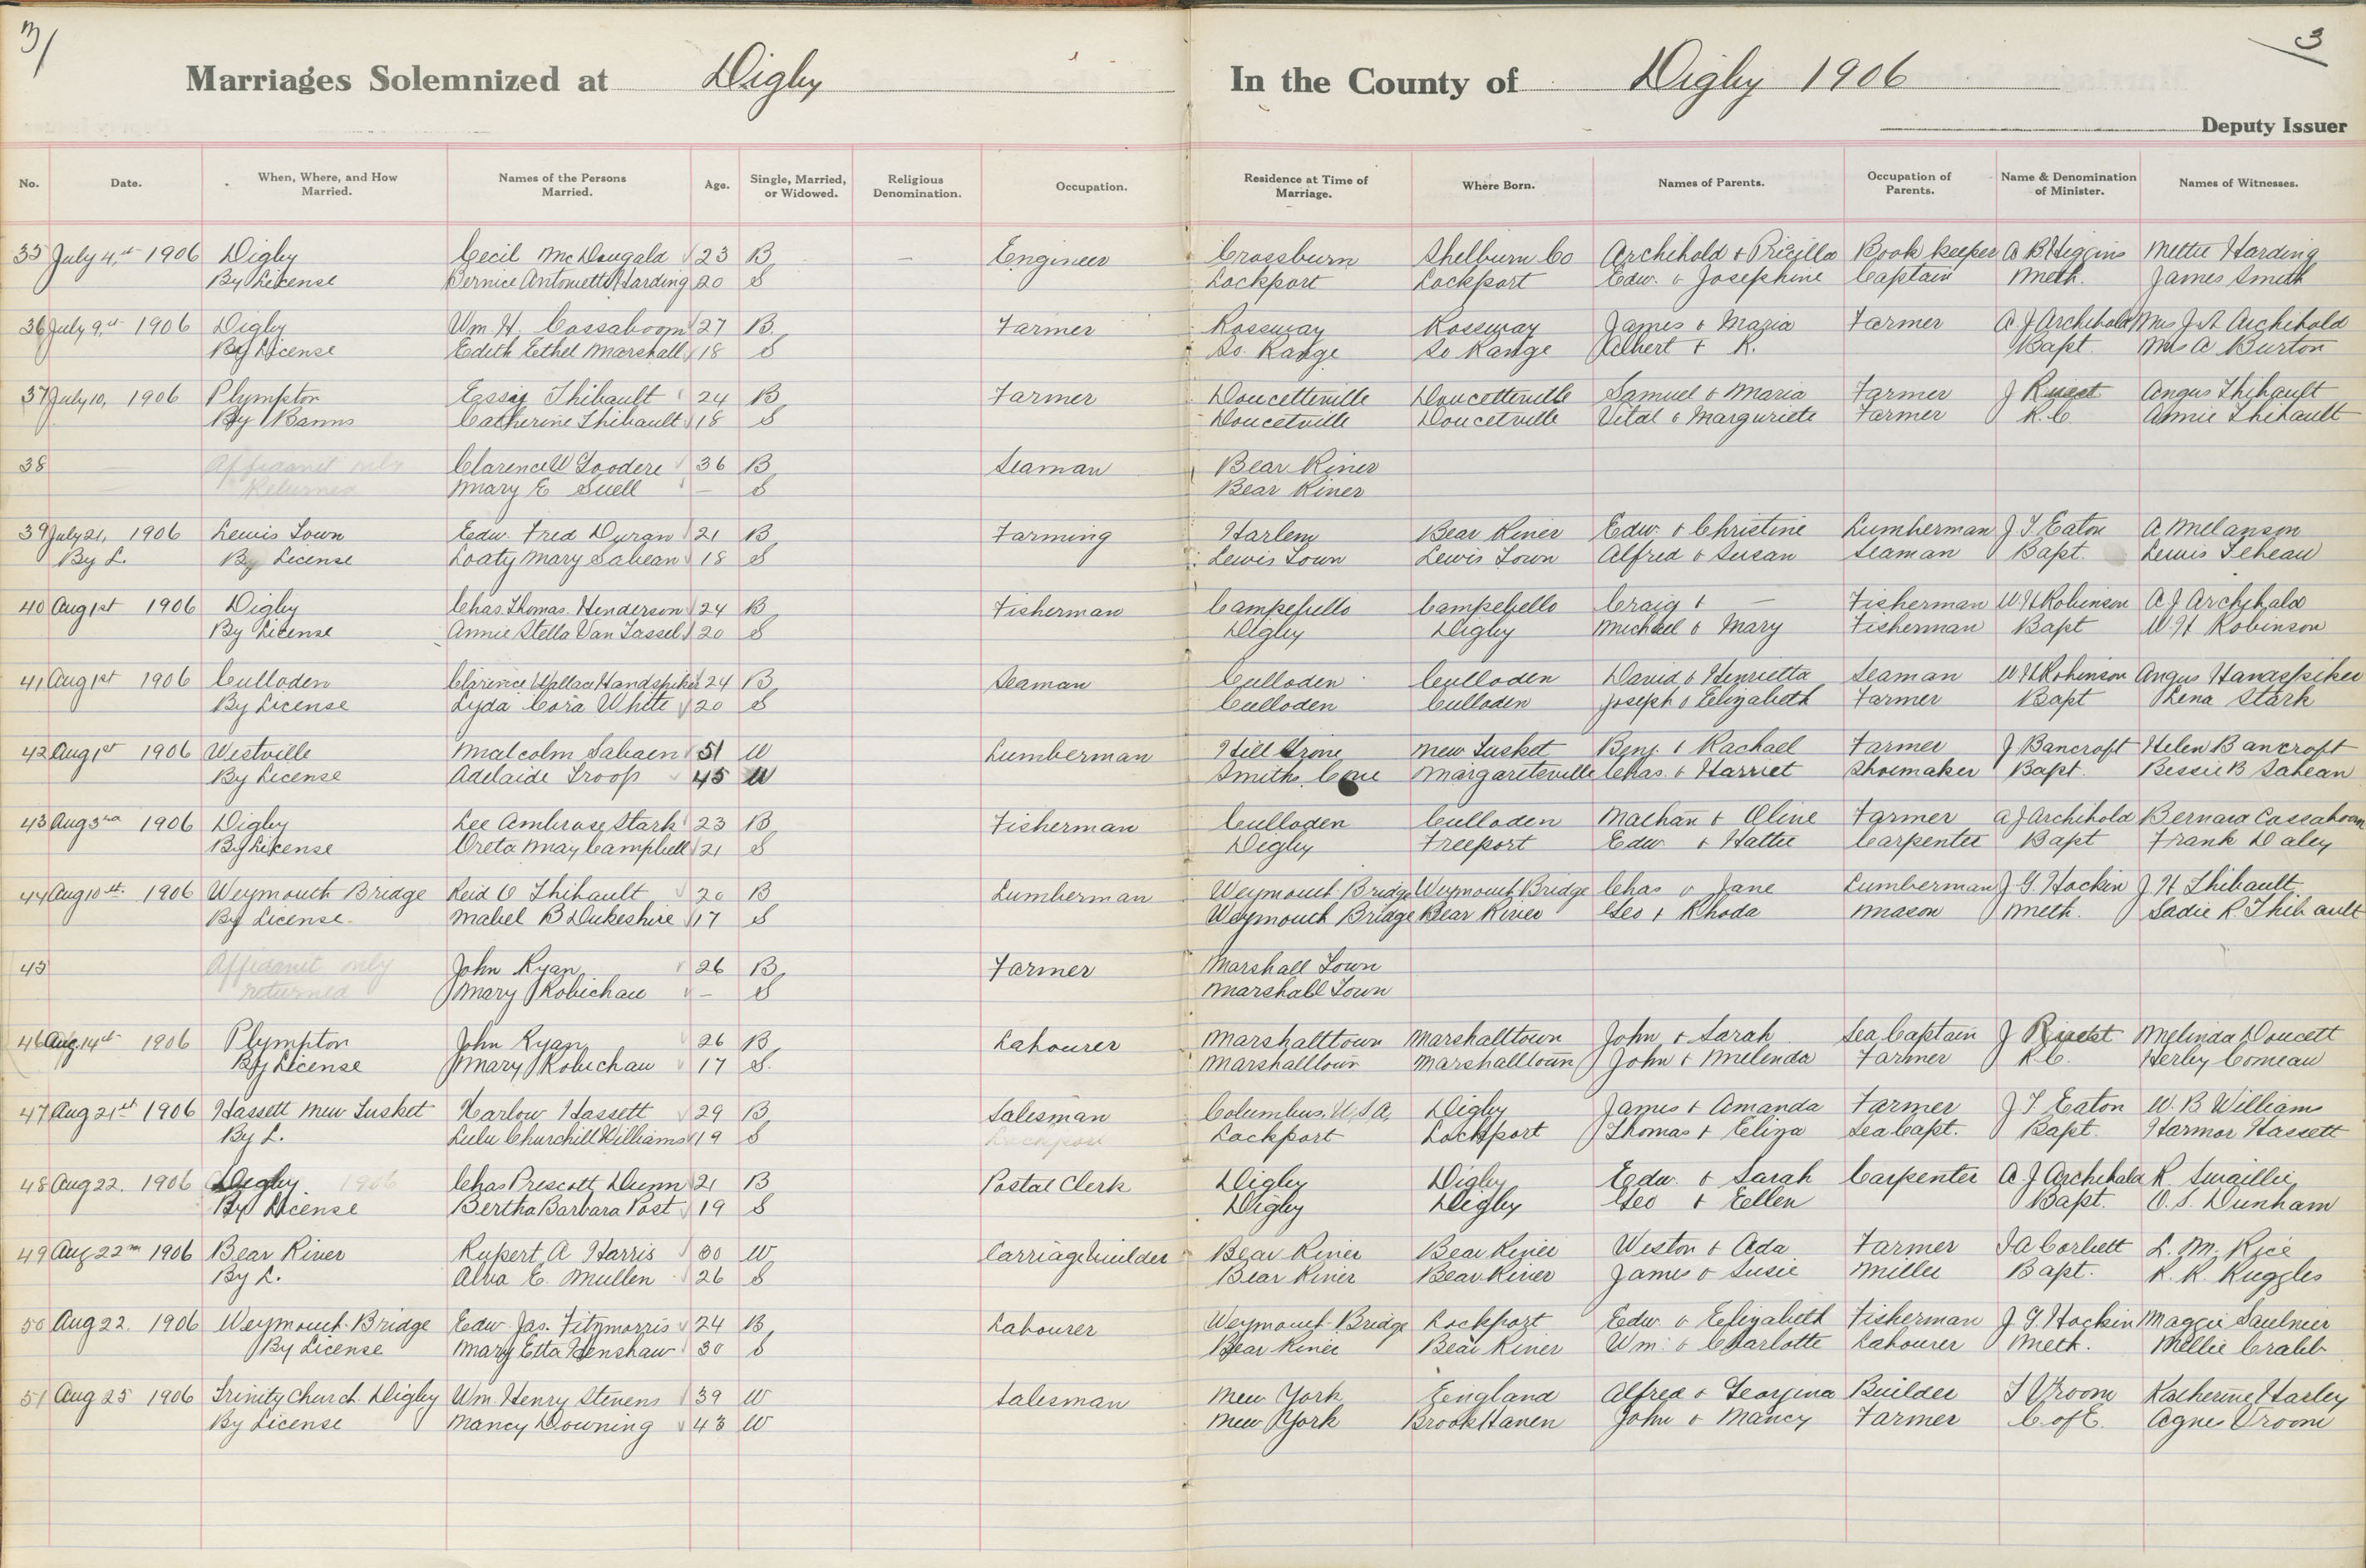 3/
3
Marriages Solemnized at Digby In the County of Digby 1906
Deputy Issuer
No. Date. When, Where, and How Married. Names of the Persons Married. Age. Single, Married, or Widowed. Religious Denomination. Occupation. Residence at Time of Marriage. Where Born. Names of Parents. Occupation of Parents. Name & Denomination of Minister. Names of Witnesses.
35 July 4th 1906 Digby Cecil McDougald 23 B — Engineer Crossburn Shelburn Co Archibold + Pricilla Book keeper A B Higgins Mettie Harding
By License Bernice Antonette Harding 20 S Lockport Lockport Edw. & Josephine Captain Meth. James Smith
36 July 9th 1906 Digby Wm. H. Cossaboom 27 B Farmer Rossway Rossway James & Mazia Farmer A. J Archibald Mrs J A Archibald
By License Edith Eethel Marshall 18 S So. Range So Range Albert + R. Bapt. Mrs A Burton
37 July 10, 1906 Plympton Thibault 24 B Farmer Doucetteville Doucetteville Samuel & Maria Farmer J Angus Thibault
By Banns Catherine Thibault 18 S Doucetville Doucetville Vital & Marguriete Farmer R. C. Annie Thibault
38 — Affidavit only Clarence W Goodere 36 B Seaman Bear River
Returned Mary E Snell — S Bear River
39 July 21, 1906 Lewis Town Edw. Fred Duran 21 B Farming Harlem Bear River Edw. & Christine Lumberman J T Eaton A Melanson
By L. By License Loaty Mary Sabean 18 S Lewis Town Lewis Town Alfred & Susan Seaman Bapt. Lewis Tebeau
40 Aug 1st 1906 Digby Chas. Thomas Henderson 24 B Fisherman Campebello Campebello Craig + — Fisherman W. H Robinson A. J Archibald
By License Annie Stella Van Tassel 20 S Digby Digby Michael & Mary Fisherman Bapt W. H Robinson
41 Aug 1st 1906 Culloden Clarence Wallace Handspiker 24 B Seaman Culloden Culloden David & Henrietta Seaman W H Robinson Angus Handspiker
By License Lyda Cora White 20 S Culloden Culloden Joseph & Elizabeth Farmer Bapt Lena Stark
42 Aug 1st 1906 Westville Malcolm Sabaen 51 W Lumberman Hill Grove New Tusket Benj. + Rachael Farmer J Bancroft Helen Bancroft
By License Adelaide Troop 45 W Smiths Cove Margaretsville Chas. & Harriet Shoemaker Bapt. Bessie B Sabean
43 Aug 3rd 1906 Digby Lee Ambrose Stark 23 B Fisherman Culloden Culloden Nathan + Oline Farmer A J Archibold Bernard Cossaboom
By License Oreta May Campbell 21 S Digby Freeport Edw + Hattie Carpenter Bapt Frank Daley
44 Aug 10th 1906 Weymouth Bridge Reid O Thibault 20 B Lumberman Weymouth Bridge Weymouth Bridge Chas & Jane Lumberman J. G. Hockin J. H Thibault
By License Mabel B Dukeshire 17 S Weymouth Bridge Bear River Geo + Rhoda Mason Meth. Sadie R. Thibault
45 Affidavit only John Ryan 26 B Farmer Marshall Town
returned Mary Robichau — S Marshall Town
46 Aug. 14th 1906 Plympton John Ryan 26 B Labourer Marshalltown Marshalltown John + Sarah Sea Captain J Melinda Doucett
By License Mary Robichau 17 S. Marshalltown Marshalltown John + Melinda Farmer R. C. Herley Comeau
47 Aug 21st 1906 Hassett New Tusket Harlow Hassett 29 B Salesman Columbus, U, S, A, Digby James + Amanda Farmer J T Eaton W. B Williams
By L. Lulu Churchill Williams 19 S Lockport Lockport Lockport Thomas + Eliza Sea Capt. Bapt. Harmor Hassett
48 Aug 22. 1906 Digby 1906 Chas Prescott Dunn 21 B Postal Clerk Digby Digby Edw. & Sarah Carpenter A. J Archibald R.
By License Bertha Barbara Post 19 S Digby Digby Geo + Eellen Bapt. O. S. Dunham
49 Aug 22nd 1906 Bear River Rupert A Harris 30 W Carriage builder Bear River Bear River Weston + Ada Farmer I A Corbett L. M. Rice
By L. Alva E. Mullen 26 S Bear River Bear River James & Susie Miller Bapt. R. R. Ruggles
50 Aug 22. 1906 Weymouth Bridge Edw. Jas. Fitzmorris 24 B Labourer Weymouth Bridge Lockport Edw. & Elizabeth Fisherman J. G. Hockin Maggie Saulnier
By License Mary Etta Henshaw 30 S Bear River Bear River Wm. & Charlotte Labourer Meth. Mellie Crabb
51 Aug 25 1906 Trinity Church Digby Wm. Henry Stevens 39 W Salesman New York Eengland Alfred & Georgina Builder J Vroom Katherine Harley
By License Nancy Downing 43 W New York BrookHaven John & Nancy Farmer C. of E. Agnes Vroom